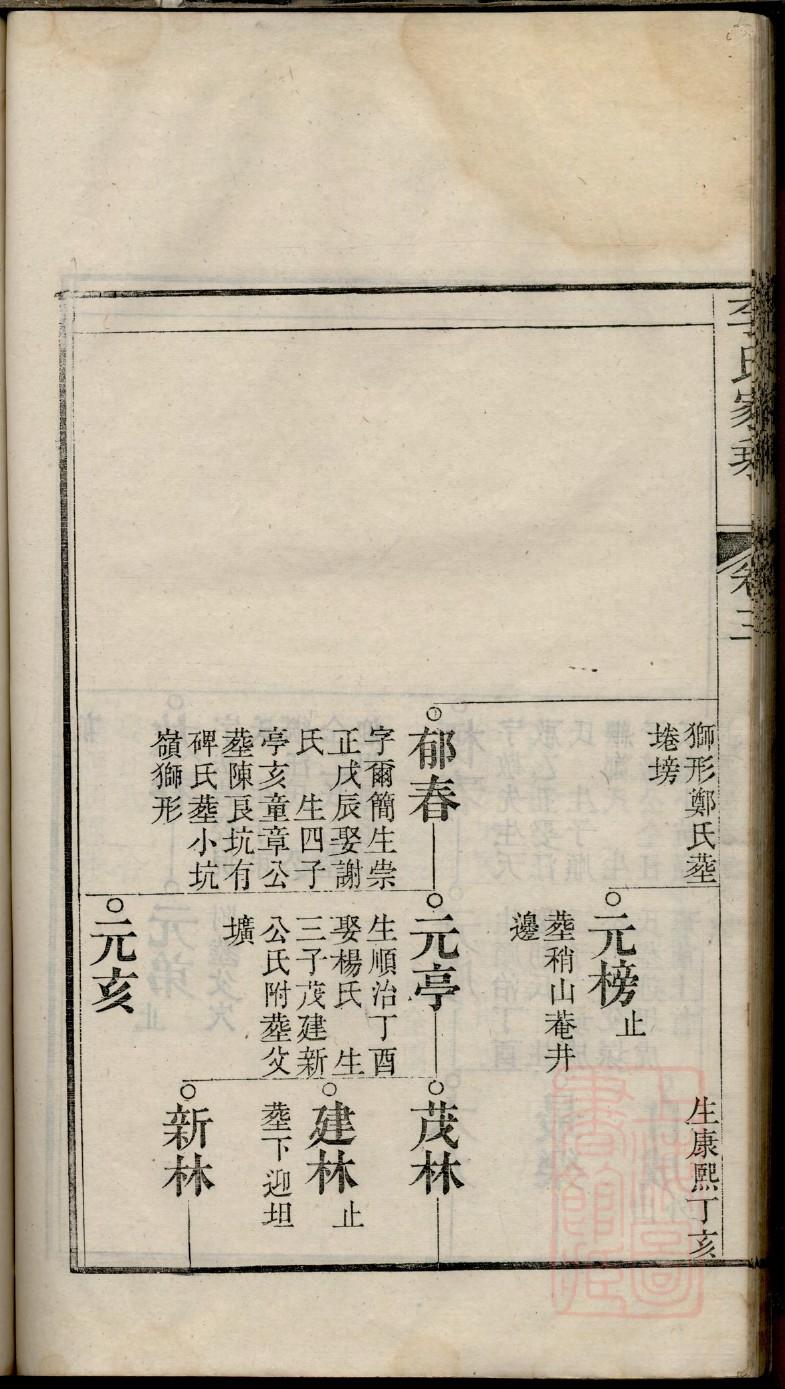 李氏家乘
卷三
獅形鄭氏塟
埢塝
元榜
止
塟稍山菴井
邊
生康熙丁亥
郁春
字爾簡生崇
正戊辰娶謝
氏　生四子
亭亥童章公
塟陳良坑有
碑氏塟小坑
嶺獅形
元亭
生順治丁酉
娶楊氏　生
三子茂建新
公氏附塟父
壙
茂林
建林
止
塟下迎坦
新林
元亥